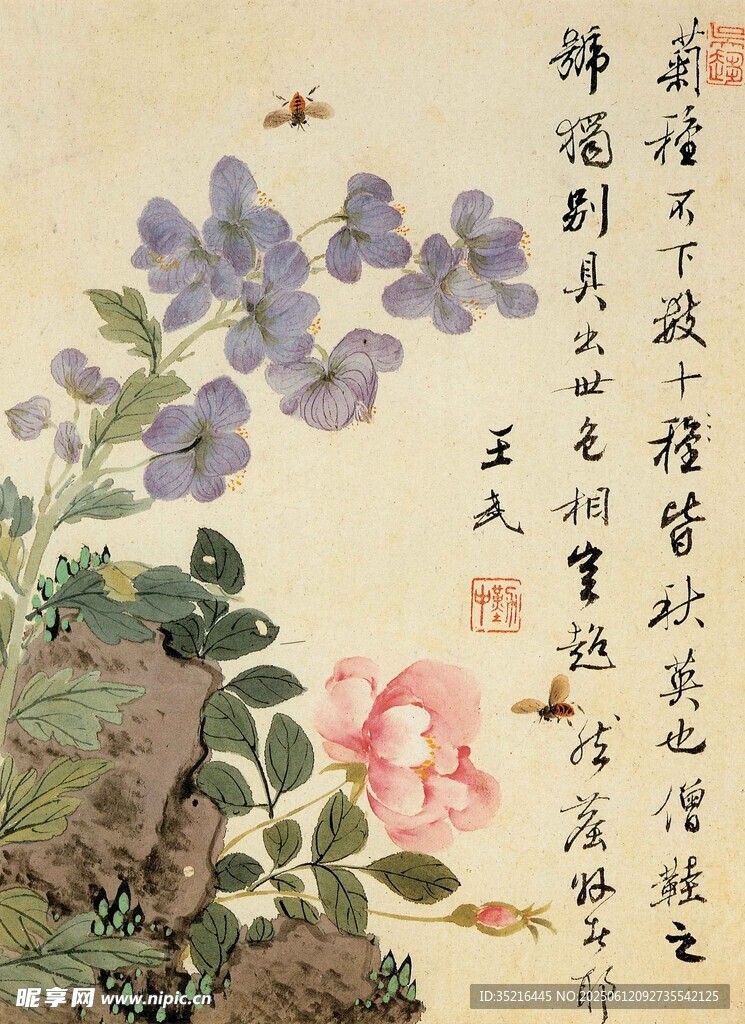 菊種不下數十種皆秋英也僧鞋之
號獨別具出世色相豈超然塵外者耶
王武
昵享网 www.nipic.cn
ID:35216445 NO:20250612092735542125